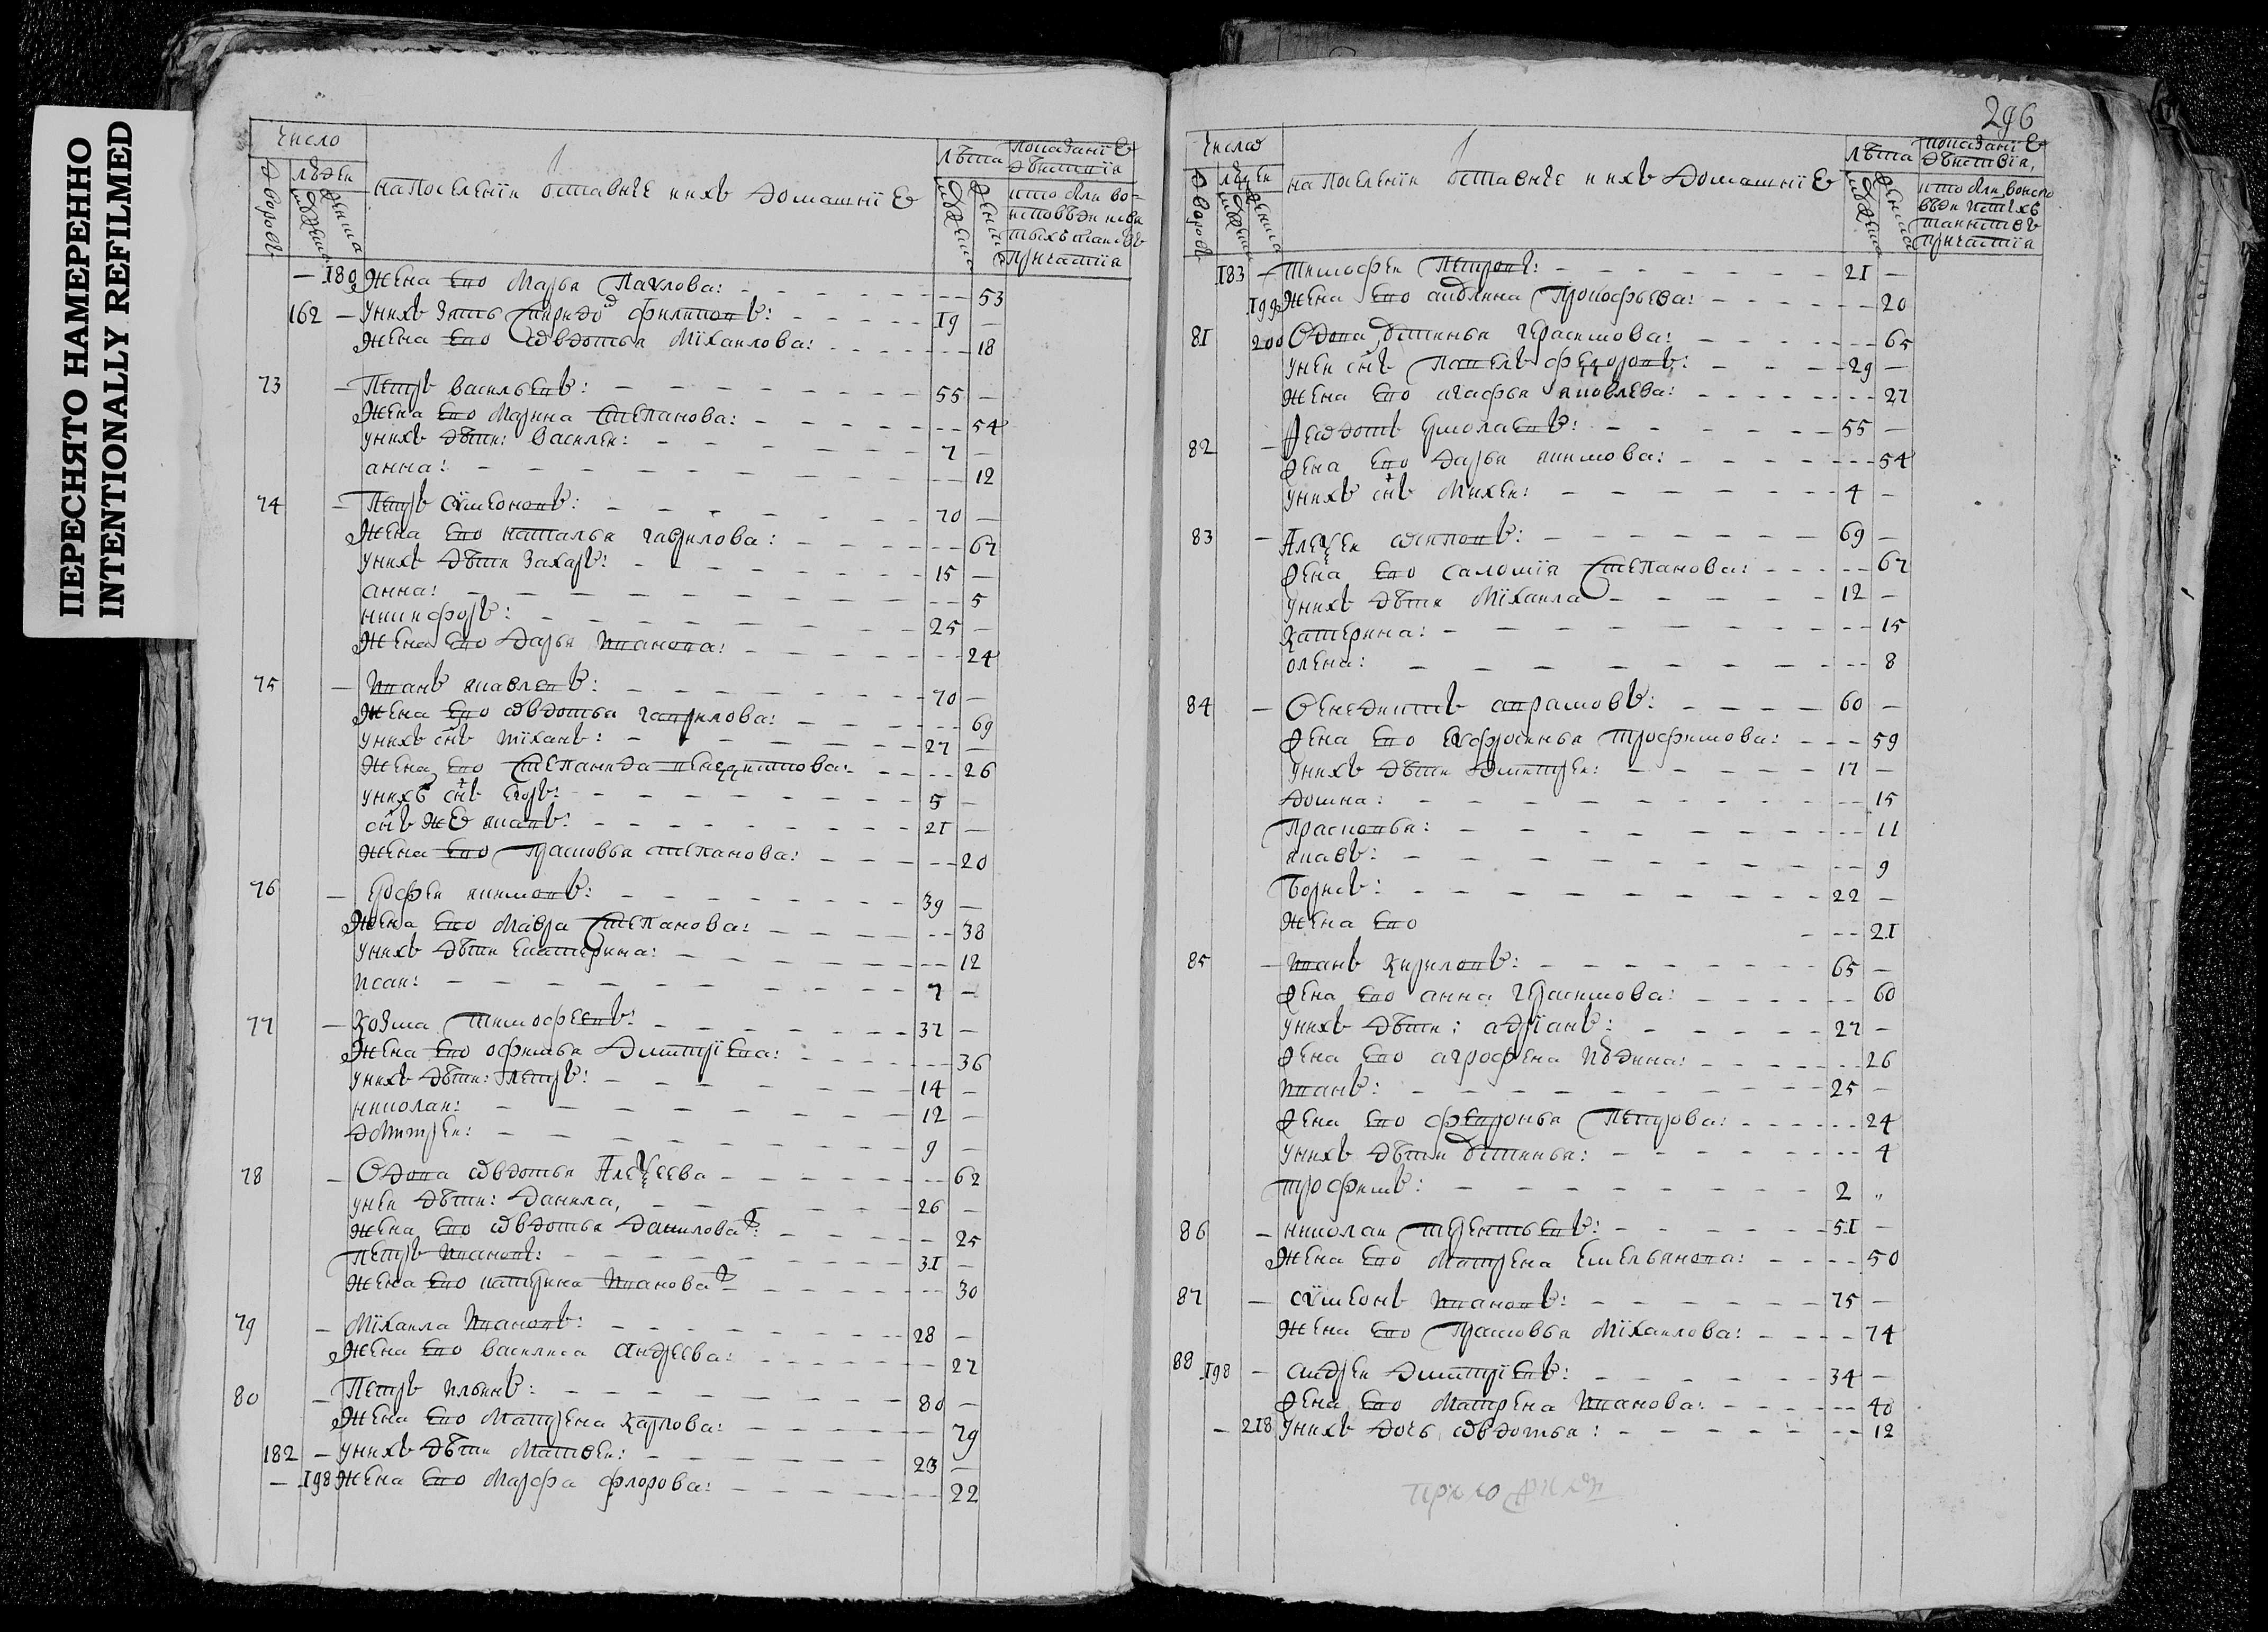 ПЕРЕСНЯТО НАМЕРЕННО
INTENTIONALLY REFILMED
Число
дворовъ
людеи
лѣта
На поселении оставшие и ихъ домашние
показание действия
кто были во
исповѣди и святыхъ таинъ
причастия
— 180 Жена ево Марья Павлова: 53
162 — У нихъ зять Спиридо филиповъ: 19 —
Жена ево авдотья Михаилова: 18
73 — Петръ васильевъ: 55 —
Жена ево Марина степанова: 54
у нихъ дѣти: василеи: 7 —
анна: 12
74 — Петръ сѵмеоновъ: 70 —
Жена ево наталья гаврилова: 67
у нихъ дѣти захаръ: 15 —
анна: 5
никифоръ: 25 —
Жена ево дарья иванова: 24
75 — иванъ яковлевъ: 70 —
Жена ево авдотья гаврилова: 69
у нихъ снъ тиханъ: 27 —
Жена ево степанида венедиктова: 26
у нихъ снъ егоръ: 5 —
снъ же яковъ: 21 —
Жена ево прасковья степанова: 20
76 — ерофеи якимовъ: 39 —
Жена ево Мавра степанова: 38
у нихъ дѣти екатерина: 12
исаи: 7 —
77 — козма тимофеевъ: 37 —
Жена ево офимья дмитриева: 36
у нихъ дѣти: петръ: 14 —
николаи: 12 —
дмитреи: 9 —
78 — вдова авдотья алеѯеева 62
у неи дѣти: данила, 26 —
Жена ево авдотья данилова 25
петръ ивановъ: 31 —
Жена ево катерина иванова 30
79 — Михаила ивановъ: 28 —
Жена ево василиса андреева: 27
80 — Петръ ильинъ: 80 —
Жена ево Матрена карпова: 79
182 — у нихъ дѣти Матвеи: 23 —
— 198 Жена ево Марфа флорова: 22
296
Число
дворовъ
людеи
лѣта
На поселении оставшие и ихъ домашние
показание действия,
кто были во испо
вѣди и святыхъ
таинствъ
причастия
183 — тимофеи Петровъ: 21 —
199 Жена ево акулина Прокофьева: 20
81 200 вдова устинья герасимова: 65
у неи снъ Павелъ федоровъ: 29 —
Жена ево агафья яковлева: 27
82 — Федотъ ермолаевъ: 55 —
Жена ево дарья якимова: 54
у нихъ снъ Михеи: 4 —
83 — Алеѯеи осиповъ: 69 —
Жена ево саломия степанова: 67
у нихъ дѣти Михаила 12 —
катерина: 15
олена: 8
84 — венедиктъ аврамовъ: 60 —
Жена ево еѵфросинья трофимова: 59
у нихъ дѣти дмитреи: 17 —
домна: 15
прасковья: 11
яковъ: 9
Борисъ: 22 —
Жена ево 21
85 — иванъ кириловъ: 65 —
Жена ево анна герасимова: 60
у нихъ дѣти: адрианъ: 27 —
Жена ево агрофена иудина: 26
иванъ: 25 —
Жена ево февронья Петрова: 24
у нихъ дѣти устинья: 4
трофимъ: 2 „
86 — николаи терентьевъ: 51 —
Жена ево Матрена емельянова: 50
87 — сѵмеонъ ивановъ: 75 —
Жена ево прасковья Михаилова: 74
88 198 — андреи дмитриевъ: 34 —
Жена ево Матрена иванова: 40
— 218 у нихъ дочь авдотья: 12